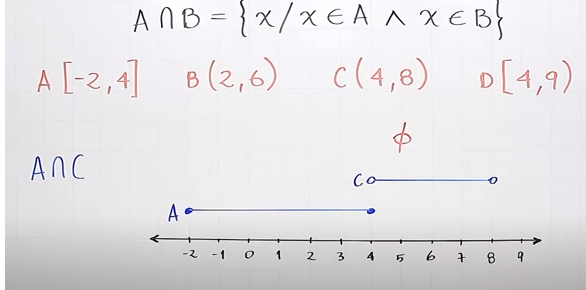 A∩B = {x/x ∈ A ∧ x ∈ B}
A [-2,4] B (2,6) C (4,8) D [4,9)
ϕ
A∩C
C
A
-2 -1 0 1 2 3 4 5 6 7 8 9